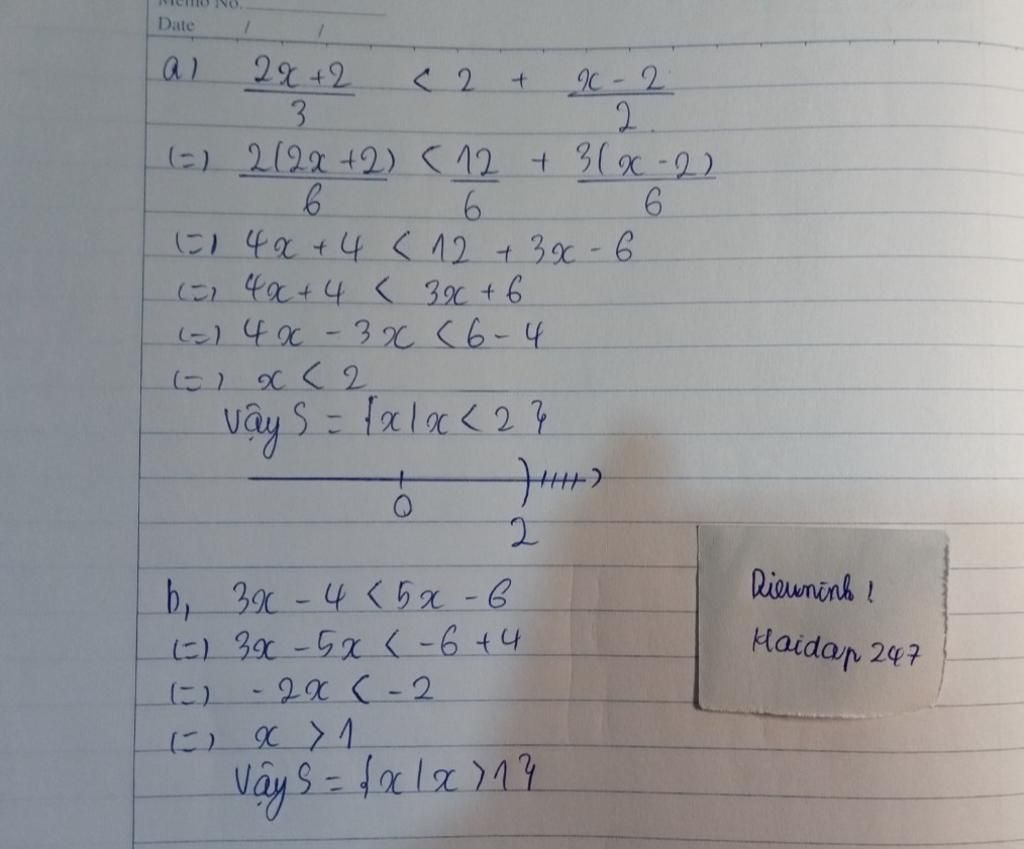 Memo No.
Date / /
a) \frac{2x+2}{3} < 2 + \frac{x-2}{2}
(=) \frac{2(2x+2)}{6} < \frac{12}{6} + \frac{3(x-2)}{6}
(=) 4x+4 < 12 + 3x - 6
(=) 4x+4 < 3x+6
(=) 4x - 3x < 6 - 4
(=) x < 2
Vậy S = {x/x < 2}
0
2
b, 3x - 4 < 5x - 6
(=) 3x - 5x < -6 + 4
(=) -2x < -2
(=) x > 1
Vậy S = {x/x > 1}
Dieuninh !
Hoidap 247